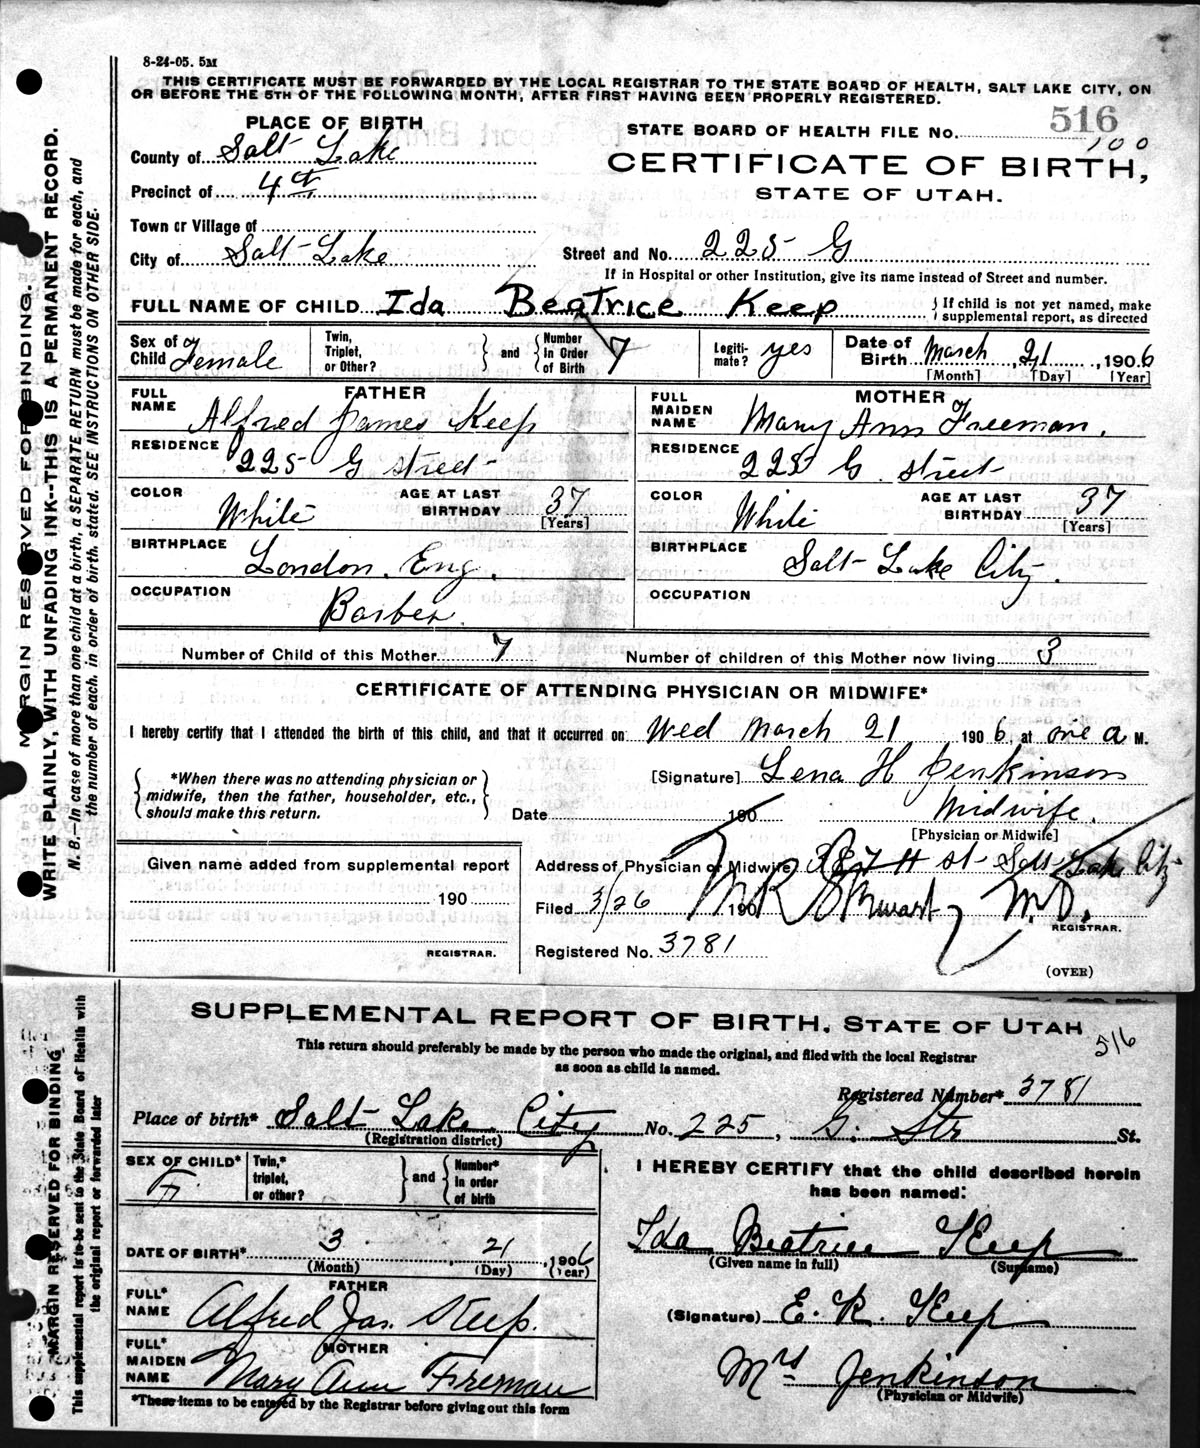 8-24-05. 5M
THIS CERTIFICATE MUST BE FORWARDED BY THE LOCAL REGISTRAR TO THE STATE BOARD OF HEALTH, SALT LAKE CITY, ON
OR BEFORE THE 5TH OF THE FOLLOWING MONTH, AFTER FIRST HAVING BEEN PROPERLY REGISTERED.
PLACE OF BIRTH
County of Salt Lake
Precinct of 4th
Town or Village of
City of Salt Lake
STATE BOARD OF HEALTH FILE No. 516
100
CERTIFICATE OF BIRTH,
STATE OF UTAH.
Street and No. 225 G
If in Hospital or other Institution, give its name instead of Street and number.
FULL NAME OF CHILD Ida Beatrice Keep } If child is not yet named, make supplemental report, as directed
Sex of Child Female Twin, Triplet, or Other? } and { Number in Order of Birth 7 Legitimate? yes Date of Birth March 21, 1906
[Month] [Day] [Year]
FATHER
FULL NAME Alfred James Keep
RESIDENCE 225 G street
COLOR White AGE AT LAST BIRTHDAY 37
[Years]
BIRTHPLACE London. Eng.
OCCUPATION Barber.
MOTHER
FULL MAIDEN NAME Mary Ann Freeman.
RESIDENCE 225 G. street
COLOR White AGE AT LAST BIRTHDAY 37
[Years]
BIRTHPLACE Salt Lake City.
OCCUPATION
Number of Child of this Mother 7 Number of children of this Mother now living 3
CERTIFICATE OF ATTENDING PHYSICIAN OR MIDWIFE*
I hereby certify that I attended the birth of this child, and that it occurred on Wed March 21 1906, at one a M.
{ *When there was no attending physician or
midwife, then the father, householder, etc.,
should make this return. }
[Signature] Lena H Jenkinson
Date 190 Midwife.
[Physician or Midwife]
Given name added from supplemental report
190
REGISTRAR.
Address of Physician or Midwife 387 H st Salt Lake City
Filed 3/26 190 M.D.
REGISTRAR.
Registered No. 3781
(OVER)
MARGIN RESERVED FOR BINDING.
WRITE PLAINLY, WITH UNFADING INK--THIS IS A PERMANENT RECORD.
N. B.—In case of more than one child at a birth, a SEPARATE RETURN must be made for each, and
the number of each, in order of birth, stated. SEE INSTRUCTIONS ON OTHER SIDE.
SUPPLEMENTAL REPORT OF BIRTH, STATE OF UTAH
516
This return should preferably be made by the person who made the original, and filed with the local Registrar
as soon as child is named.
Registered Number* 3781
Place of birth* Salt Lake City No. 225, G. Str St.
(Registration district)
SEX OF CHILD* F. Twin,* triplet, or other? } and { Number* in order of birth
DATE OF BIRTH* 3 21, 1906
(Month) (Day) (Year)
FATHER
FULL* NAME Alfred Jas. Keep.
MOTHER
FULL* MAIDEN NAME Mary Ann Freman
*These items to be entered by the Registrar before giving out this form
I HEREBY CERTIFY that the child described herein
has been named:
Ida Beatrice Keep
(Given name in full) (Surname)
(Signature) E. R. Keep
Mrs Jenkinson
(Physician or Midwife)
MARGIN RESERVED FOR BINDING
This supplemental report is to be sent to the State Board of Health with
the original report or forwarded later